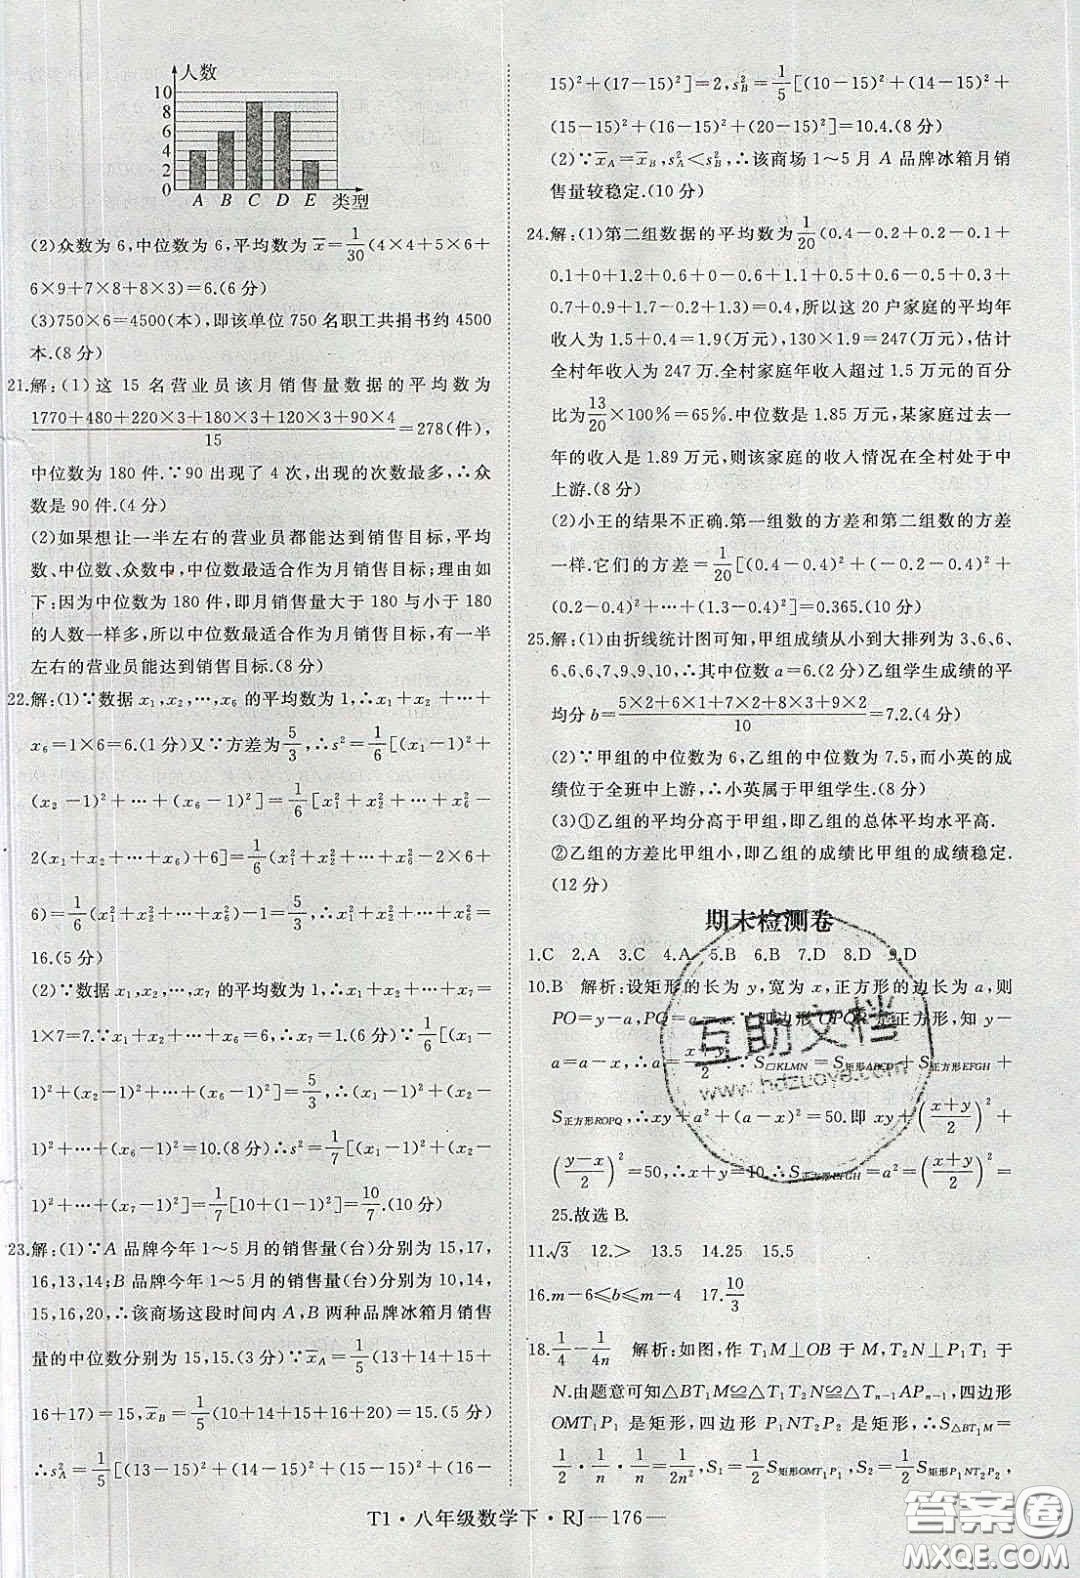 人数
10
8
6
4
2
0
A B C D E 类型
(2)众数为 6,中位数为 6,平均数为 x̄=1/30(4×4+5×6+
6×9+7×8+8×3)=6.(6 分)
(3)750×6=4500(本),即该单位 750 名职工共捐书约 4500
本.(8 分)
21.解:(1)这 15 名营业员该月销售量数据的平均数为
(1770+480+220×3+180×3+120×3+90×4)/15=278(件),
中位数为 180 件.∵90 出现了 4 次,出现的次数最多,∴众
数是 90 件.(4 分)
(2)如果想让一半左右的营业员都能达到销售目标,平均
数、中位数、众数中,中位数最适合作为月销售目标;理由如
下:因为中位数为 180 件,即月销售量大于 180 与小于 180
的人数一样多,所以中位数最适合作为月销售目标,有一半
左右的营业员能达到销售目标.(8 分)
22.解:(1)∵数据 x₁,x₂,⋯,x₆ 的平均数为 1,∴x₁+x₂+⋯+
x₆=1×6=6.(1 分)又∵方差为 5/3,∴s²=1/6[(x₁-1)²+
(x₂-1)²+⋯+(x₆-1)²]=1/6[x₁²+x₂²+⋯+x₆²-
2(x₁+x₂+⋯+x₆)+6]=1/6(x₁²+x₂²+⋯+x₆²-2×6+
6)=1/6(x₁²+x₂²+⋯+x₆²)-1=5/3,∴x₁²+x₂²+⋯+x₆²=
16.(5 分)
(2)∵数据 x₁,x₂,⋯,x₇ 的平均数为 1,∴x₁+x₂+⋯+x₇=
1×7=7.∵x₁+x₂+⋯+x₆=6,∴x₇=1.∵1/6[(x₁-
1)²+(x₂-1)²+⋯+(x₆-1)²]=5/3,∴(x₁-1)²+(x₂-
1)²+⋯+(x₆-1)²=10.(8 分)∴s²=1/7[(x₁-1)²+(x₂-
1)²+⋯+(x₇-1)²]=1/7[10+(1-1)²]=10/7.(10 分)
23.解:(1)∵A 品牌今年 1~5 月的销售量(台)分别为 15,17,
16,13,14;B 品牌今年 1~5 月的销售量(台)分别为 10,14,
15,16,20,∴该商场这段时间内 A,B 两种品牌冰箱月销售
量的中位数分别为 15,15.(3 分)∵x̄_A=1/5(13+14+15+
16+17)=15,x̄_B=1/5(10+14+15+16+20)=15.(5 分)
∴s_A²=1/5[(13-15)²+(14-15)²+(15-15)²+(16-
15)²+(17-15)²]=2,s_B²=1/5[(10-15)²+(14-15)²+
(15-15)²+(16-15)²+(20-15)²]=10.4.(8 分)
(2)∵x̄_A=x̄_B,s_A²<s_B²,∴该商场 1~5 月 A 品牌冰箱月销
售量较稳定.(10 分)
24.解:(1)第二组数据的平均数为 1/20(0.4-0.2+0.2-0.1+
0.1+0+1.2+0.6+0-0.6+1+0.5+0.3-0.4+0.3+
0.7+0.9+0.7-0.2+1.3)=0.4,所以这 20 户家庭的平均年
收入为 1.5+0.4=1.9(万元),130×1.9=247(万元),估计
全村年收入为 247 万.全村家庭年收入超过 1.5 万元的百分
比为 13/20×100%=65%.中位数是 1.85 万元,某家庭过去一
年的收入是 1.89 万元,则该家庭的收入情况在全村处于中
上游.(8 分)
(2)小王的结果不正确.第一组数的方差和第二组数的方差
一样.它们的方差=1/20[(0.4-0.4)²+(-0.2-0.4)²+
(0.2-0.4)²+⋯+(1.3-0.4)²]=0.365.(10 分)
25.解:(1)由折线统计图可知,甲组成绩从小到大排列为 3,6,6,
6,6,6,7,9,9,10,∴其中位数 a=6.(2 分)乙组学生成绩的平
均分 b=(5×2+6×1+7×2+8×3+9×2)/10=7.2.(4 分)
(2)∵甲组的中位数为 6,乙组的中位数为 7.5,而小英的成
绩位于全班中上游,∴小英属于甲组学生.(8 分)
(3)①乙组的平均分高于甲组,即乙组的总体平均水平高.
②乙组的方差比甲组小,即乙组的成绩比甲组的成绩稳定.
(12 分)
期末检测卷
1.C 2.A 3.C 4.A 5.B 6.B 7.D 8.D 9.D
10.B 解析:设矩形的长为 y,宽为 x,正方形的边长为 a,则
PO=y-a,PQ=a-x.∵四边形 OPQR 是正方形,知 y-
a=a-x,∴a=(x+y)/2.∵S▱KLMN=S矩形ABCD+S正方形EFGH+
S正方形ROPQ,∴xy+a²+(a-x)²=50.即 xy+((x+y)/2)²+
((y-x)/2)²=50,∴x+y=10,∴S正方形EFGH=a²=((x+y)/2)²=
25.故选 B.
11.√3 12.> 13.5 14.25 15.5
16.m-6≤b≤m-4 17.10/3
18.1/4-1/4n 解析:如图,作 T₁M⊥OB 于 M,T₂N⊥P₁T₁ 于
N.由题意可知△BT₁M≌△T₁T₂N≌△Tₙ₋₁APₙ₋₁,四边形
OMT₁P₁ 是矩形,四边形 P₁NT₂P₂ 是矩形,∴S△BT₁M=
1/2·1/n·1/n=1/2n²,S₁=1/2S矩形OMT₁P₁,S₂=1/2S矩形P₁NT₂P₂,
T1·八年级数学下·RJ—176—
互助文档
www.hdzuoye.com
答案圈
MXQE.COM